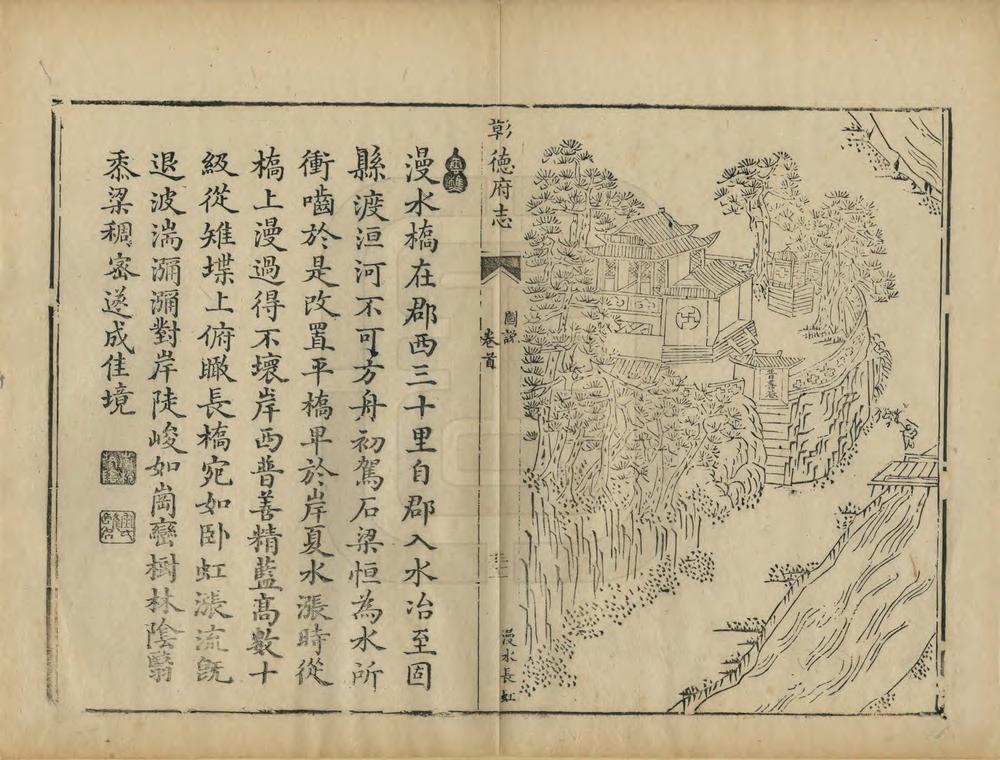 普善菴
彰德府志
圖說
卷首
漫水長虹
漫水橋在郡西三十里自郡入水冶至固
縣渡洹河不可方舟初駕石梁恒為水所
衝嚙於是改置平橋卑於岸夏水漲時從
橋上漫過得不壞岸西普善精藍高數十
級從雉堞上俯瞰長橋宛如卧虹漲流旣
退波湍瀰瀰對岸陡峻如崗巒樹林陰翳
黍粱稠宻遂成佳境